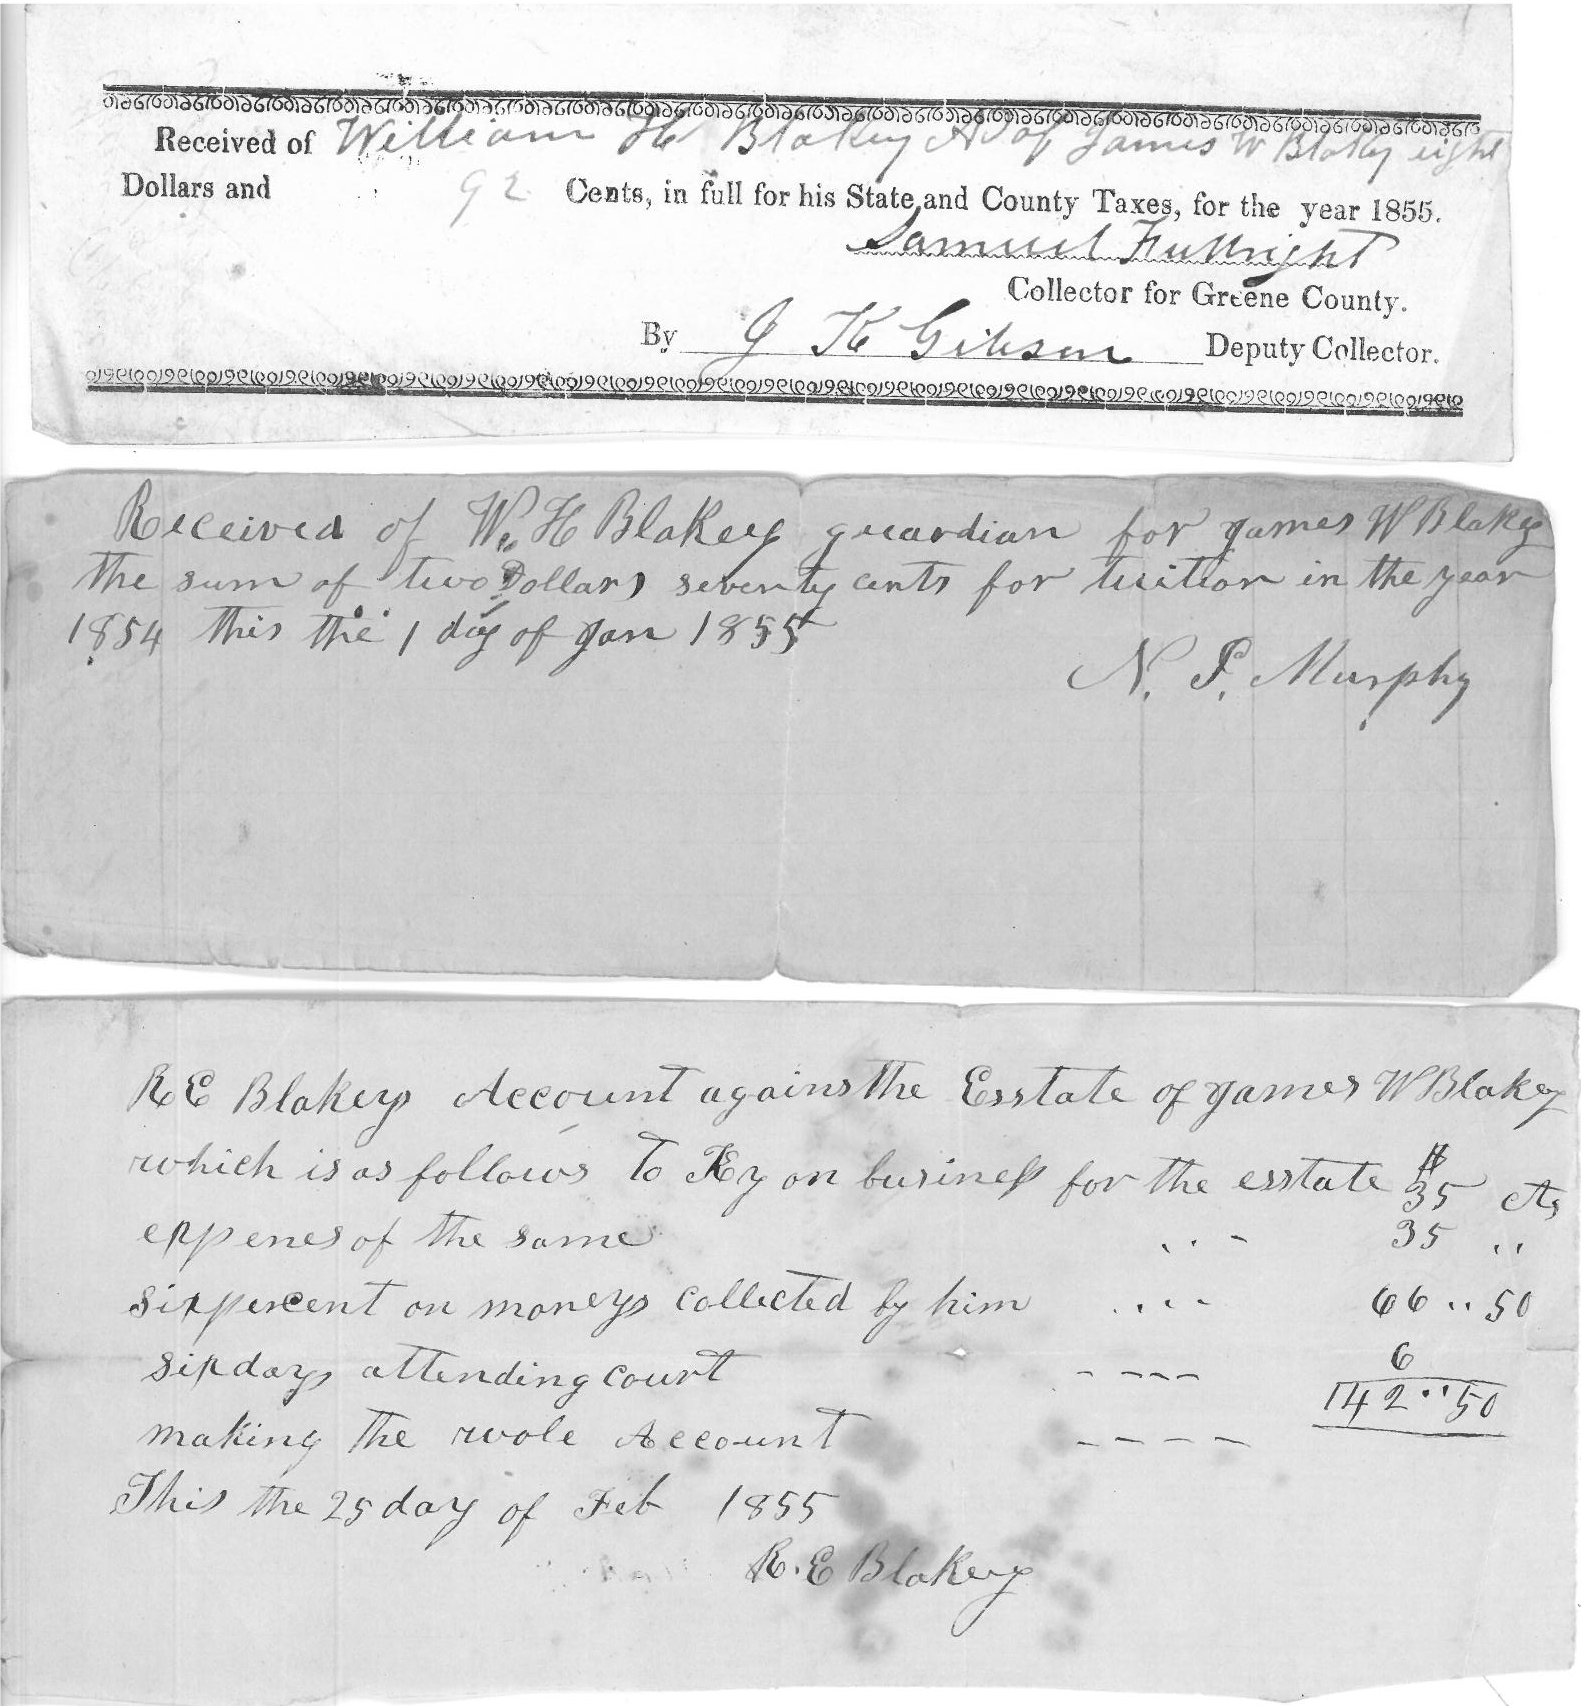 Received of William H Blakey Ad of James W Blakey eight
Dollars and 92 Cents, in full for his State and County Taxes, for the year 1855.
Samuel Fulbright
Collector for Greene County.
By J K Gibson Deputy Collector.
Received of W. H Blakey guardian for James W Blakey
the sum of two Dollars seventy cents for tuition in the year
1854 this the 1 day of Jan 1855
N. P. Murphy
R E Blakeys Account against the Esstate of James W Blakey
which is as follows To Ky on business for the esstate $ 35 cts
expenes of the same 35 ,,
six percent on moneys collected by him 66 .. 50
six days attending court 6
142 .. 50
making the wole Account
This the 25 day of Feb 1855
R. E Blakey